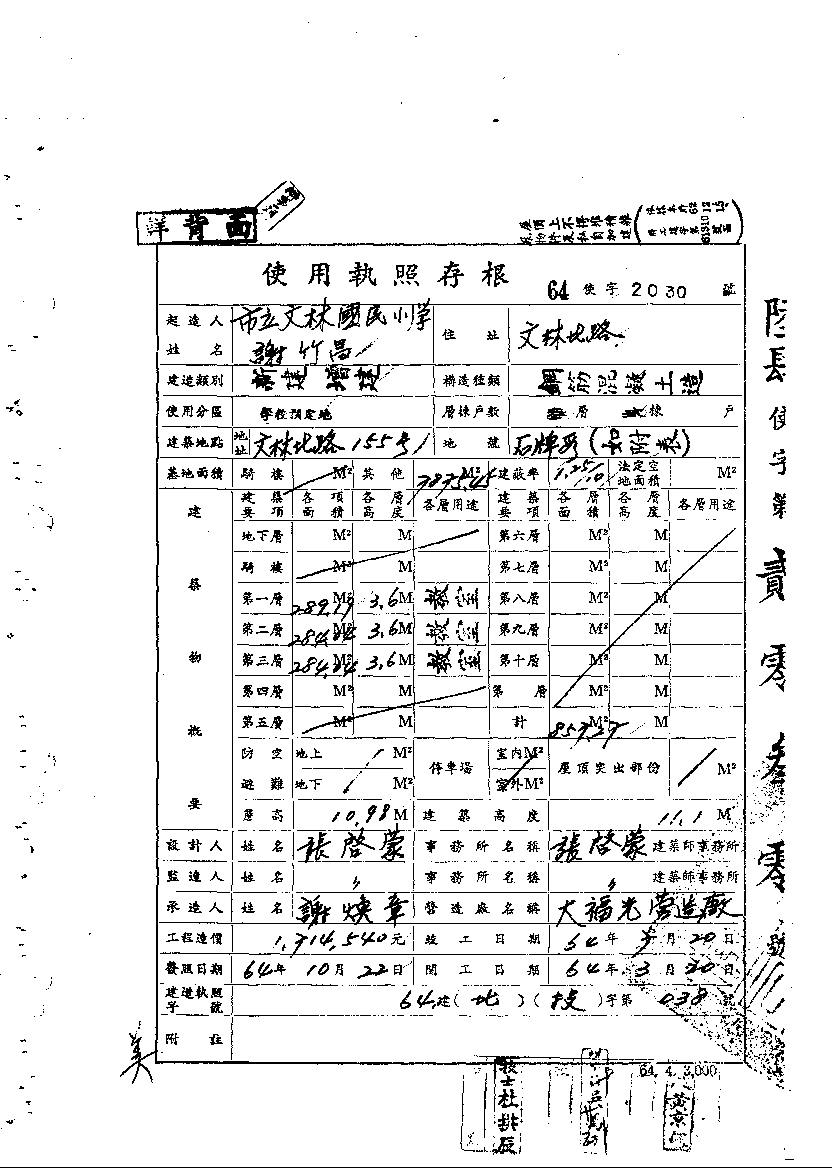 詳背面
使用執照存根
64 使字 2030 號
起造人 姓名 市立文林國民小学 謝竹昌 住址 文林北路
建造類別 新建 增建 構造種類 鋼筋混凝土造
使用分區 學校預定地 層棟戶數 層 棟 戶
建築地點 地址 文林北路155号 地號 石牌段(如附表)
基地面積 騎樓 M² 其他 M² 建蔽率 法定空地面積 M²
建築物概要
建築要項 各項面積 各層高度 各層用途 建築要項 各層面積 各層高度 各層用途
地下層 M² M 第六層 M² M
騎樓 M² M 第七層 M² M
第一層 M² 3.6M 教室 第八層 M² M
第二層 284.04 M² 3.6M 教室 第九層 M² M
第三層 284.04 M² 3.6M 教室 第十層 M² M
第四層 M² M 第 層 M² M
第五層 M² M 計 M² M
防空避難 地上 M² 地下 M² 停車場 室內M² 室外M² 屋頂突出部份 M²
層高 10.98M 建築高度 11.1M
設計人 姓名 張啓蒙 事務所名稱 張啓蒙 建築師事務所
監造人 姓名 〃 事務所名稱 〃 建築師事務所
承造人 姓名 謝煥章 營造廠名稱 大福光營造廠
工程造價 1,314,540元 竣工日期 64年 月20日
發照日期 64年10月22日 開工日期 64年3月20日
建造執照字號 64建(北)(投)字第038號
附註
64.4.3,000
使字第貳零叁零號
美
技士杜拱辰